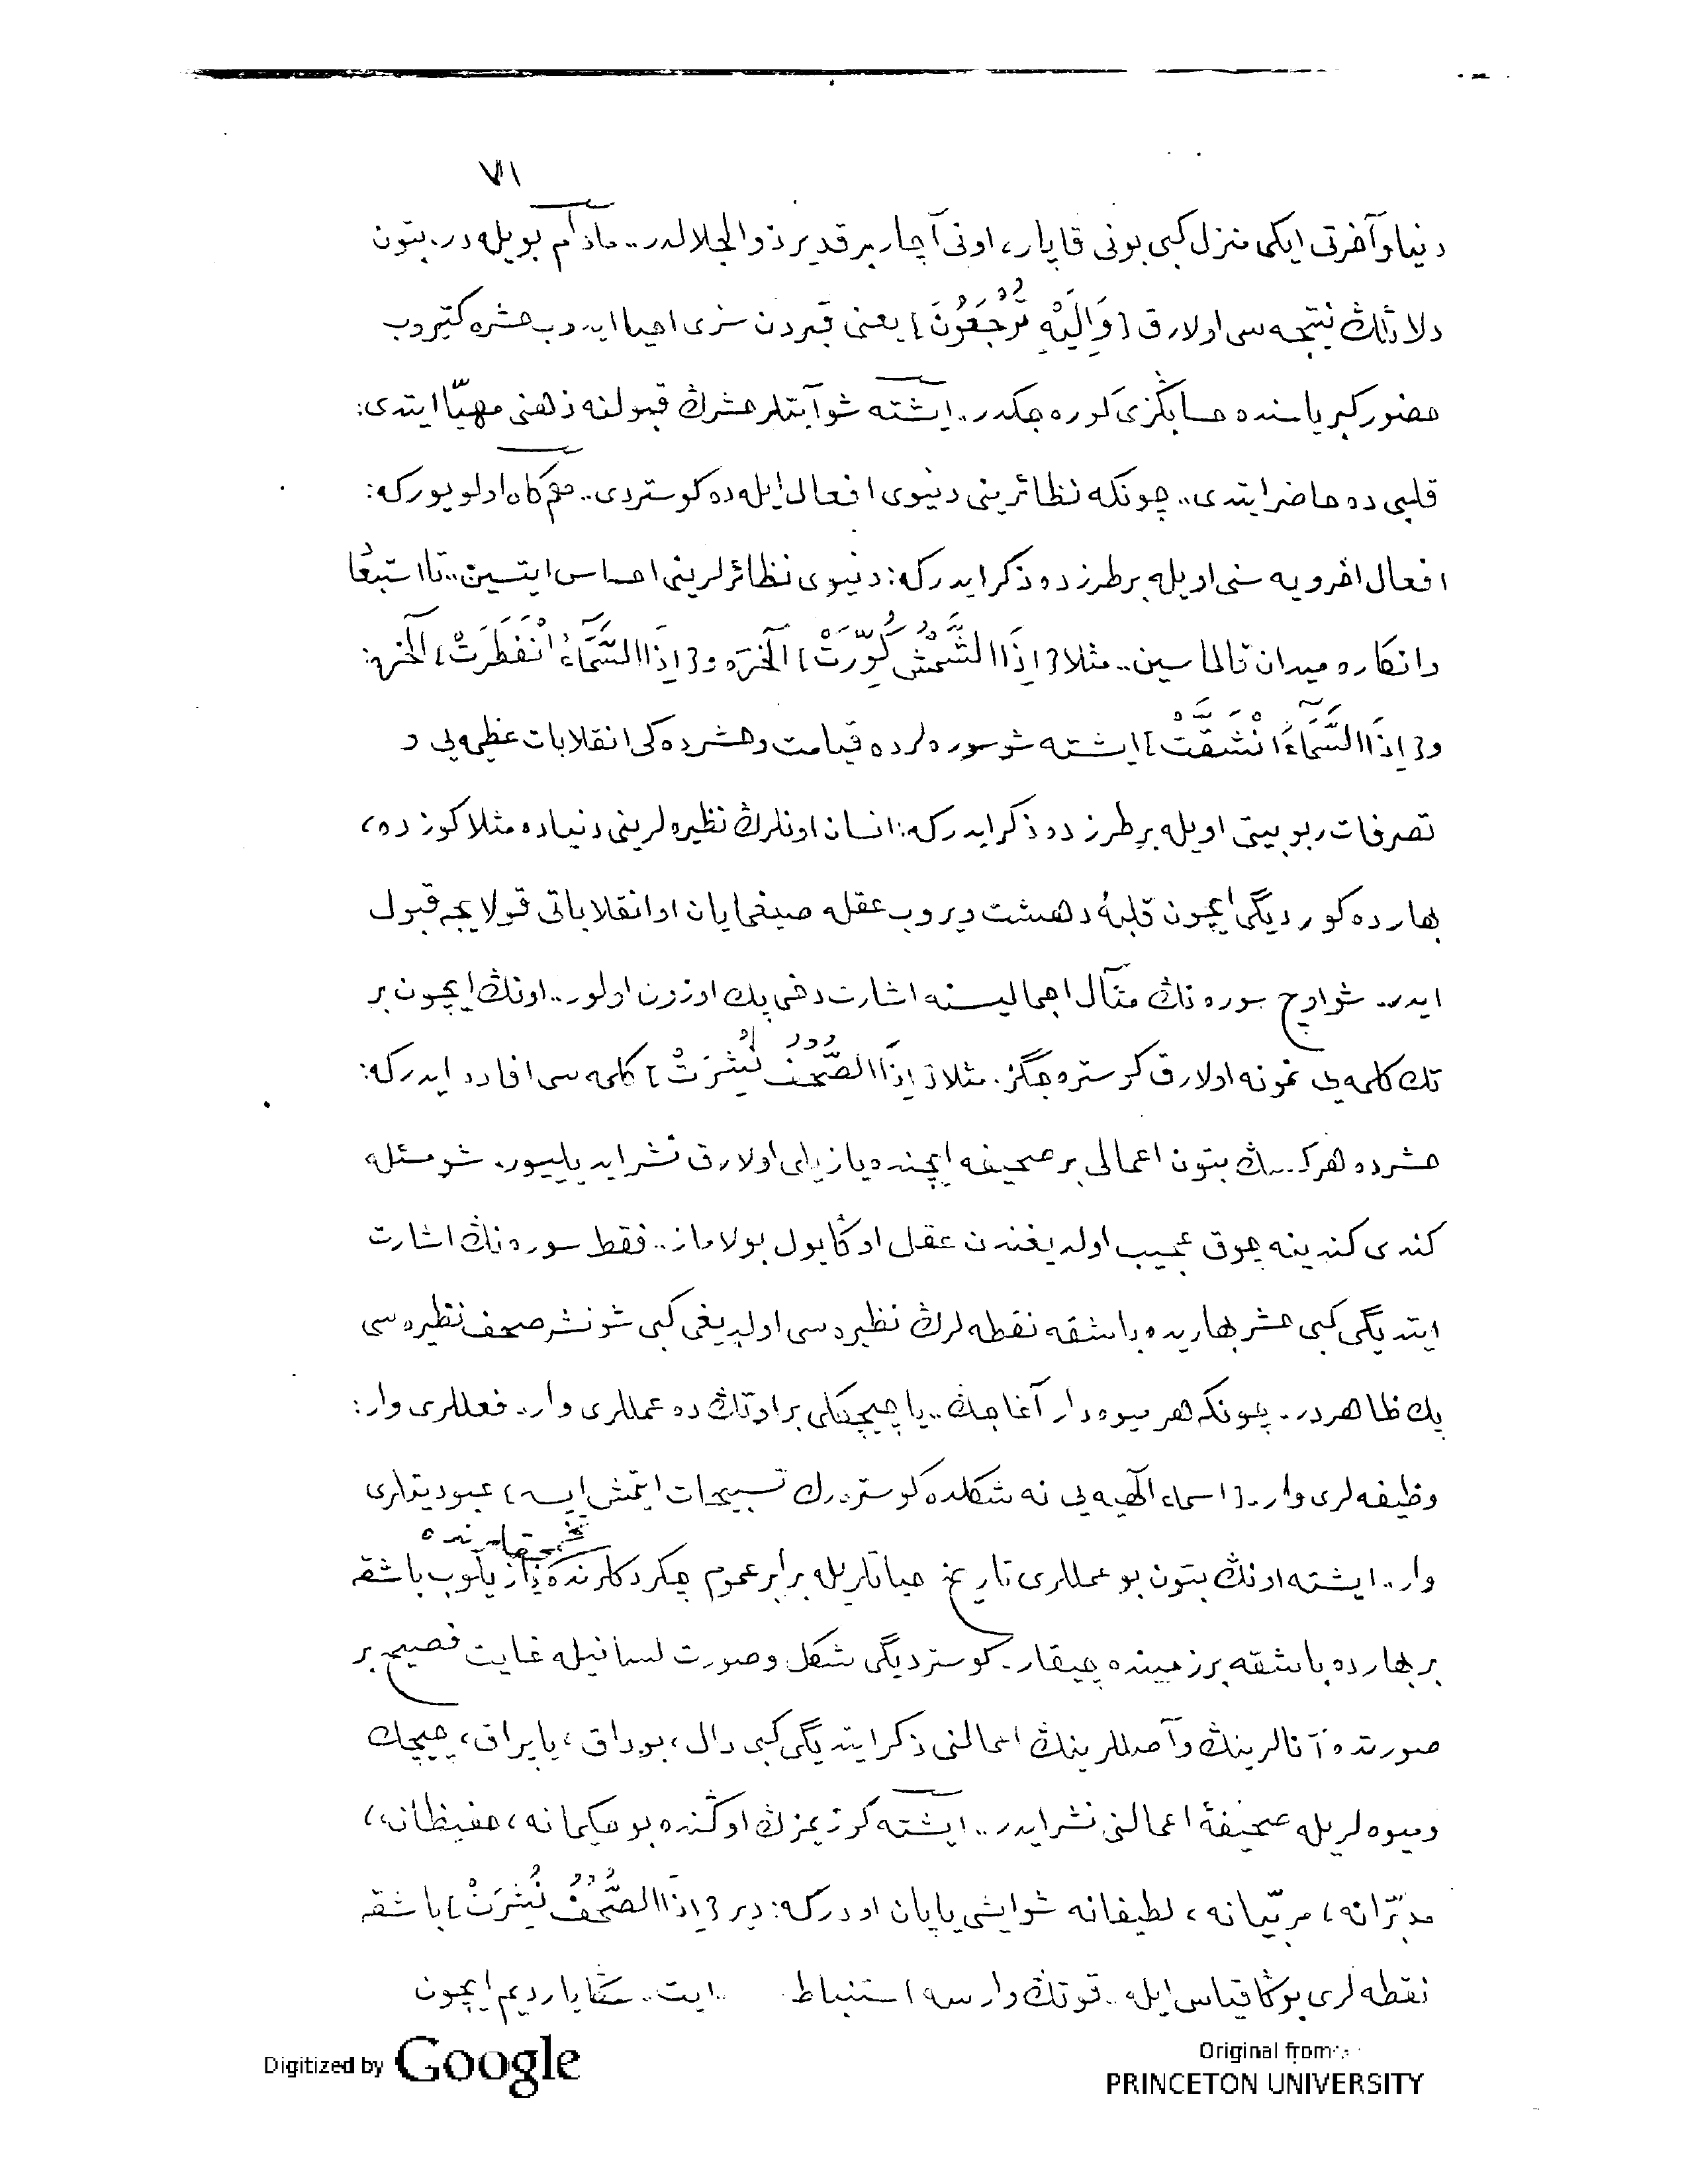 ٧١
دنيا و آخرتى ايكى منزل كبى بونى قاپار، اونى آچار بر قدير ذوالجلالدر.. مادام بويله در. بتون
دلائلڭ نتيجه سى اولارق [وَاِلَيْهِ تُرْجَعُونَ] يعنى قبردن سزى احيا ايدوب حشره كتيروب
حضور كبرياسنده حسابڭزى كوره جكدر.. ايشته شو آيتلر حشرڭ قبولنه ذهنى مهيّا ايتدى:
قلبى ده حاضر ايتدى.. چونكه نظائرينى دنيوى افعال ايله ده كوستردى.. هم كاه اولويوركه:
افعال اخرويه سنى اويله بر طرزده ذكر ايدركه: دنيوى نظائرلرينى احساس ايتسين.. تا استبعا
و انكاره ميدان قالماسين.. مثلا [اِذَا الشَّمْسُ كُوِّرَتْ] الخره و [اِذَا السَّمَآءُ انْفَطَرَتْ] الخره:
و [اِذَا السَّمَآءُ انْشَقَّتْ] ايشته شو سوره لرده قيامت و حشرده كى انقلابات عظيمه يى و
تصرفات ربوبيتى اويله بر طرزده ذكر ايدركه: انسان اونلرڭ نظيره لرينى دنياده مثلا كوزده،
بهارده كورديگى ايچون قلبه دهشت ويروب عقله صيغمايان او انقلاباتى قولايجه قبول
ايدر.. شو اوچ سوره نڭ مئآل اجماليسنه اشارت دخى پك اوزون اولور.. اونڭ ايچون بر
تك كلمه يى نمونه اولارق كوستره جگز. مثلا [اِذَا الصُّحُفُ نُشِرَتْ] كلمه سى افاده ايدركه:
حشرده هركسڭ بتون اعمالى بر صحيفه ايچنده يازيلى اولارق نشر ايديلييور. شو مسئله
كندى كندينه چوق عجيب اولديغندن عقل اوڭا يول بولاماز.. فقط سوره نڭ اشارت
ايتديگى كبى حشر بهاريده باشقه نقطه لرڭ نظيره سى اولديغى كبى شو نشر صحف نظيره سى
پك ظاهردر. چونكه هر ميوه دار آغاجڭ.. يا چيچكلى بر اوتڭ ده عمللرى وار.. فعللرى وار:
وظيفه لرى وار.. [اسماء الٓهيه يى نه شكلده كوستره رك تسبيحات ايتمش ايسه] عبوديتلرى
وار.. ايشته اونڭ بتون بو عمللرى تاريخ حياتلريله برابر عموم چكردكلرنده يازيلوب باشقه
بر بهارده باشقه بر زمينده چيقار. كوسترديگى شكل و صورت لسانيله غايت فصيح بر
صورتده آنالرينڭ و آصللرينڭ اعمالنى ذكر ايتديگى كبى دال، بوداق، ياپراق، چيچك
و ميوه لريله صحيفهٔ اعمالنى نشر ايدر.. ايشته كوزيمزڭ اوڭنده بو حكيمانه، حفيظانه،
مدبّرانه، مربّيانه، لطيفانه شو ايشى ياپان اودركه: دير [اِذَا الصُّحُفُ نُشِرَتْ] باشقه
نقطه لرى بوڭا قياس ايله.. قوتڭ وارسه استنباط ايت.. سڭا يارديم ايچون
Digitized by Google
Original from
PRINCETON UNIVERSITY